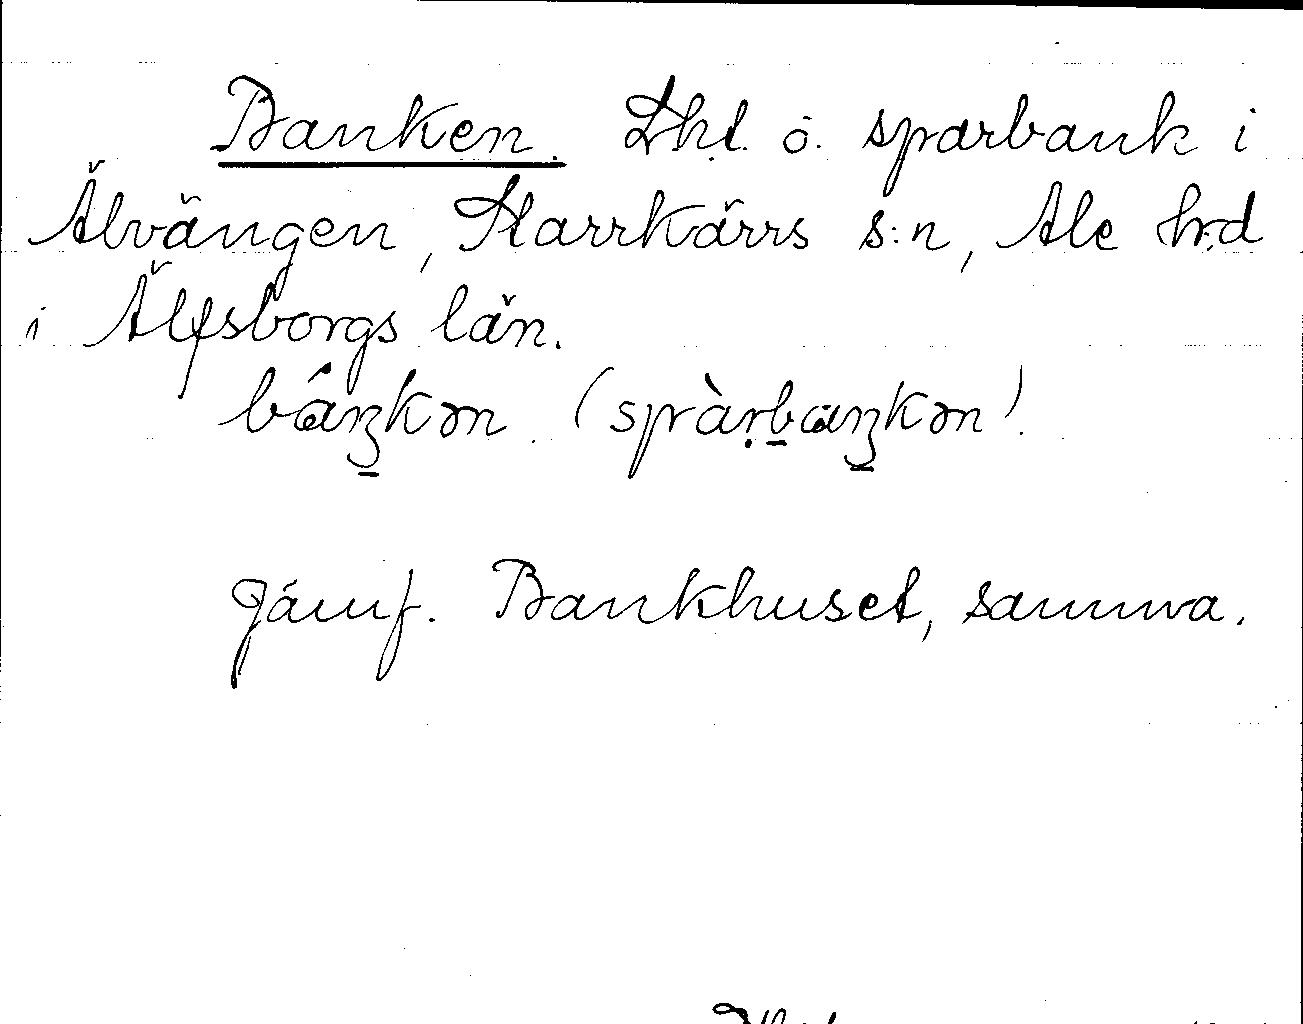 Banken. Lht. o. sparbank i
Älvängen, Starrkärrs s:n, Ale hrd
i Älfsborgs län.
báŋkən (spàrbaŋkən)
Jämf. Bankhuset, samma.